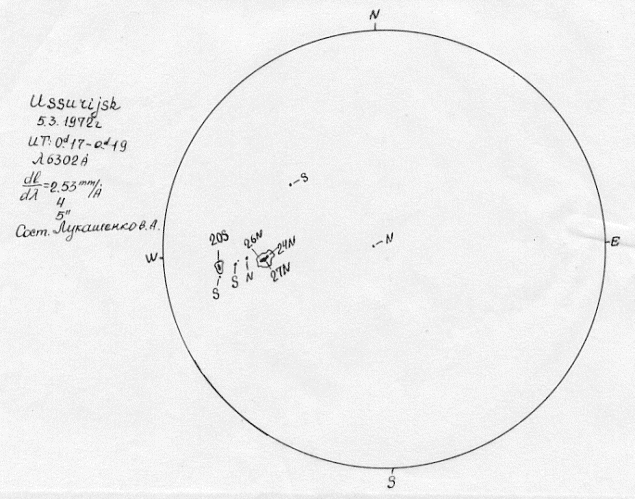 N
Ussurijsk
5.3. 1972г
UT: 0ᵈ17-0ᵈ19
λ6302Å
dl/dλ=2.53mm/Å
4
5"
Сост. Лукашенко В.А.
S
W
E
N
20S
26N
24N
27N
S
S
N
S